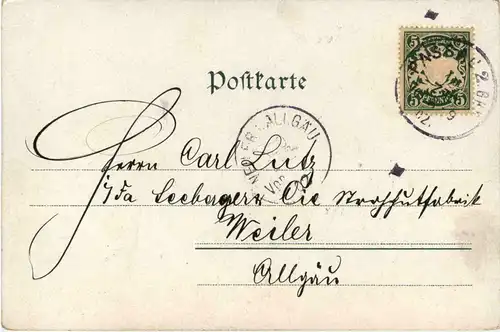 Postkarte
5 5
PFENNIG
WEILER I. ALLGÄU
Herrn Carl Lutz
i/Fa Seeberger & Cie Strohhutfabrik
Weiler
Allgäu